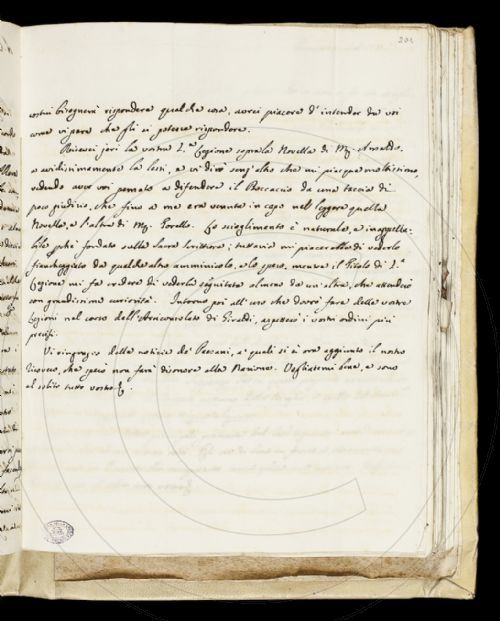 costui bisognerà rispondere qualche cosa, avrei piacere d'intender da voi
come vi pare che gli si potesse rispondere.
Ricevei jeri la vostra I.ª Lezione sopra la Novella di Mg. Ansaldo
e avidissimamente la lessi, e vi dirò senz'altro che mi piacque moltissimo,
vedendo aver voi pensato a difendere il Boccaccio da una taccia di
poco giudizio, che fino a me era venuta in capo nel leggere quella
Novella, e l'altra di Mg. Torello. Lo scioglimento è naturale, e inappella-
bile perchè fondato sulla Sacra Scrittura; tuttavia mi piacerebbe di vederlo
fiancheggiato da qualche altro amminicolo, e lo spero, mentre il titolo di I.ª
Lezione mi fa credere di vederla seguitata almeno da un'altra, che attenderò
con grandissima curiosità. Intorno poi all'uso che dovrò fare delle vostre
Lezioni nel corso dell'Arciconsolato di Giraldi, aspetterò i vostri ordini più
precisi.
Vi ringrazio delle notizie de' Pensani, a' quali si è ora aggiunto il nostro
Vescovo, che però non farà disonore alla Nazione. Vogliatemi bene, e sono
al solito tutto vostro